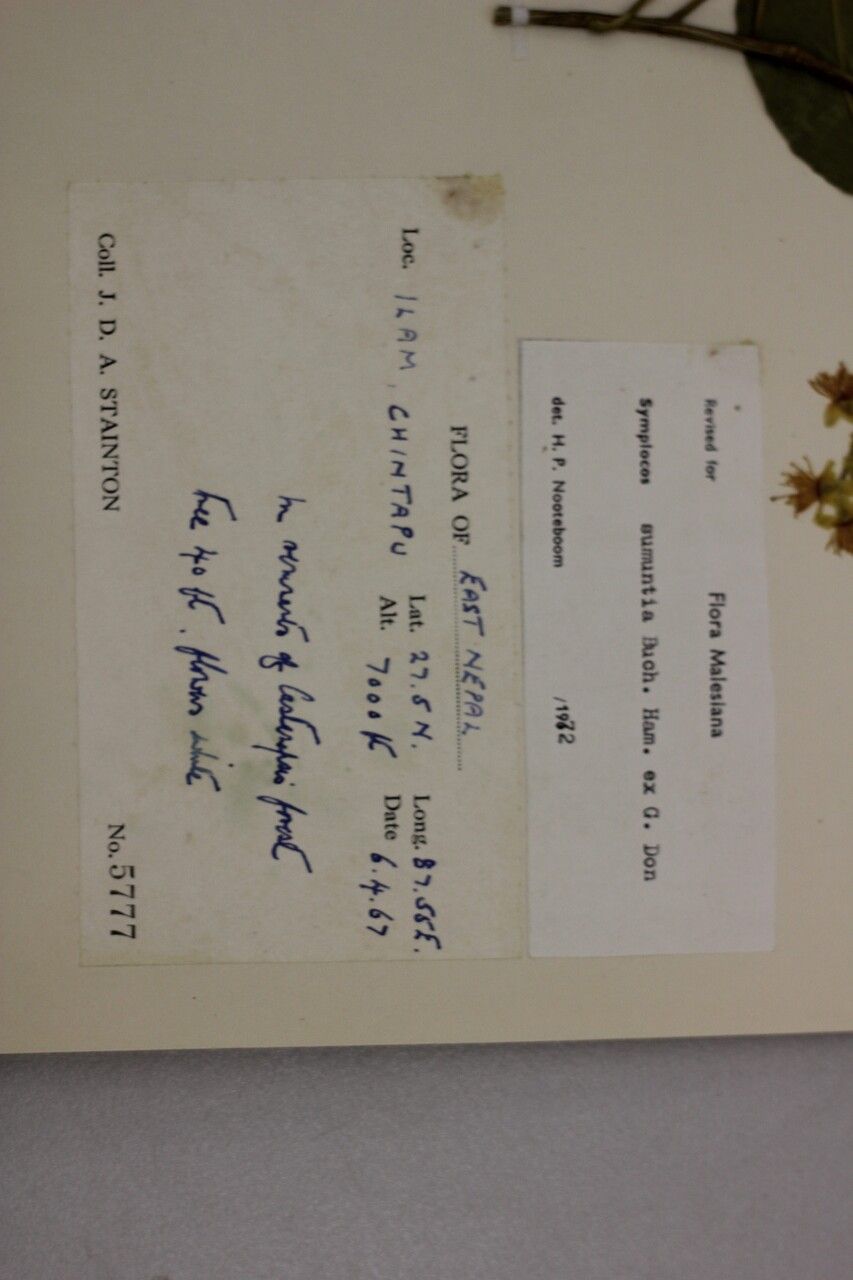 Revised for Flora Malesiana
Symplocos sumuntia Buch. Ham. ex G. Don
det. H. P. Nooteboom /1972.
FLORA OF EAST NEPAL
Loc. ILAM, CHINTAPU Lat. 27.5 N. Long. 87.55E.
Alt. 7000 ft Date 6.4.67
In remnants of Castanopsis forest
Tree 40 ft. flowers white
Coll. J. D. A. STAINTON No. 5777